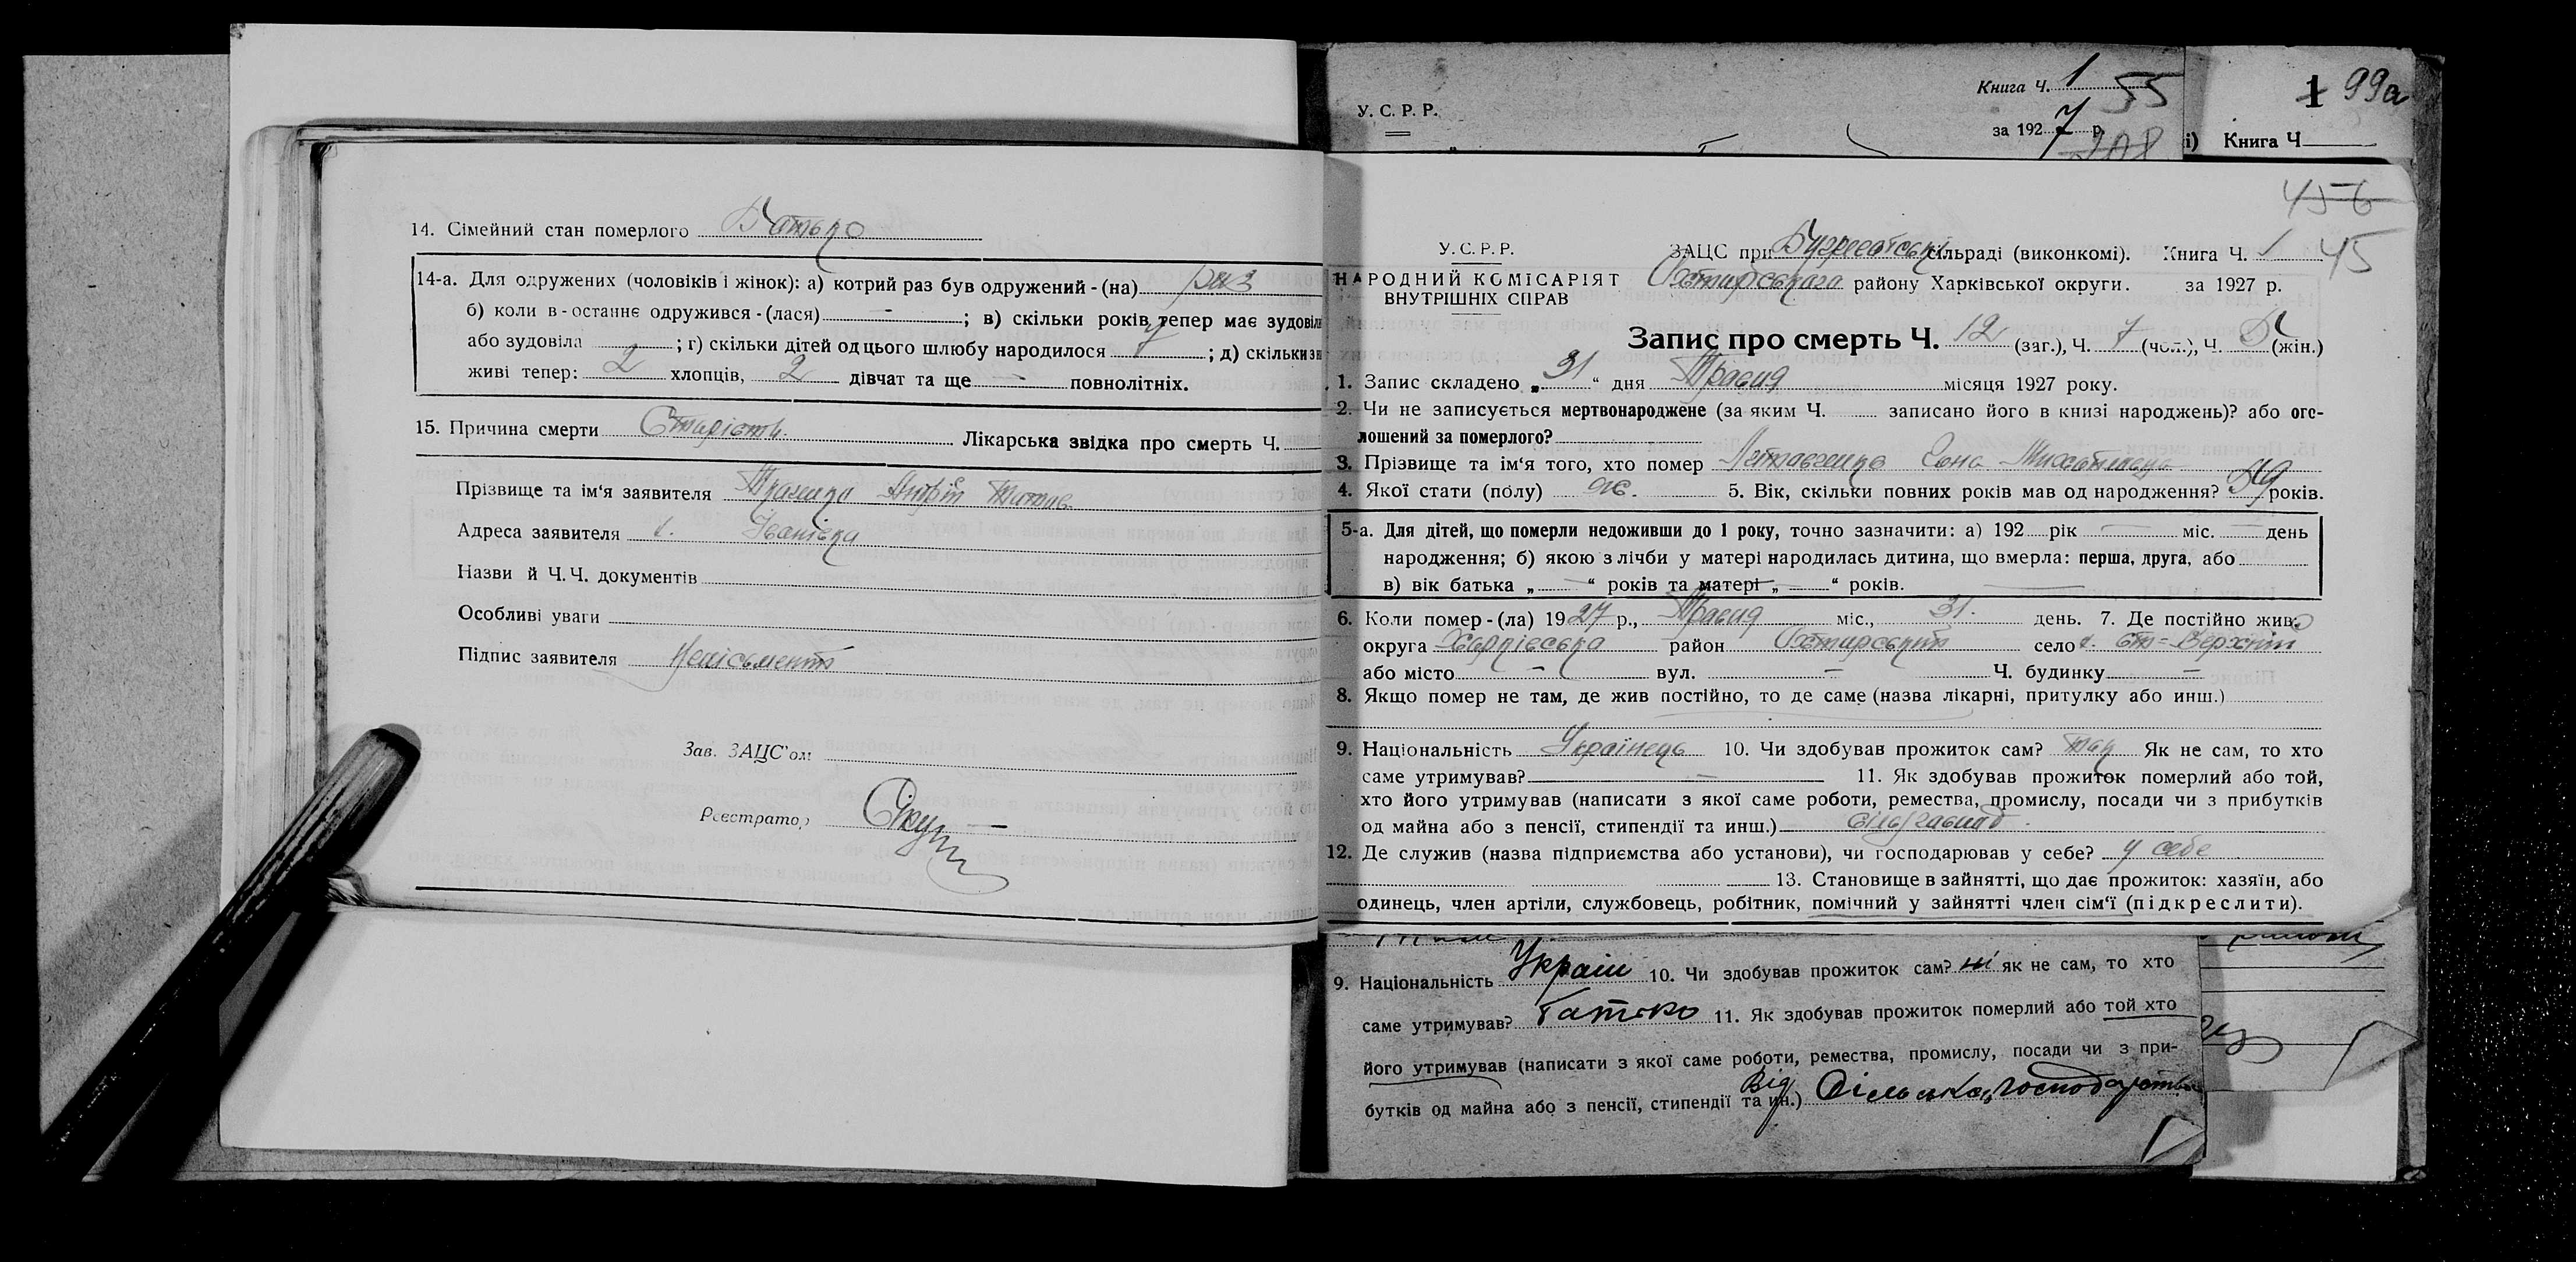 14. Сімейний стан померлого Батько
14-а. Для одружених (чоловіків і жінок): а) котрий раз був одружений - (на) раз
б) коли в - останнє одружився - (лася) — ; в) скільки років тепер має зудовіл
або зудовіла ; г) скільки дітей од цього шлюбу народилося 4 ; д) скільки з н
живі тепер: 2 хлопців, 2 дівчат та ще — повнолітніх.
15. Причина смерти Старість. Лікарська звідка про смерть Ч.
Прізвище та ім'я заявителя Андрій
Адреса заявителя х. Іванівка
Назви й Ч.Ч. документів
Особливі уваги
Підпис заявителя Неписьменний
Зав. ЗАЦС'ом
Реєстратор
Книга Ч. 1 55
У. С. Р. Р.
за 1927 р.
208
1 99а
і) Книга Ч
456
45
У. С. Р. Р. ЗАЦС при сільраді (виконкомі). Книга Ч. 1
НАРОДНИЙ КОМІСАРІЯТ Охтирського району Харківської округи. за 1927 р.
ВНУТРІШНІХ СПРАВ
Запис про смерть Ч. 12 (заг.), Ч. 7 (чол.), Ч. (жін.)
1. Запис складено „ 31 “ дня Травня місяця 1927 року.
2. Чи не записується мертвонароджене (за яким Ч. записано його в книзі народжень)? або ого-
лошений за померлого?
3. Прізвище та ім'я того, хто помер
4. Якої стати (полу) 5. Вік, скільки повних років мав од народження? років.
5-а. Для дітей, що померли недоживши до 1 року, точно зазначити: а) 192 рік — міс. — день
народження; б) якою з лічби у матері народилась дитина, що вмерла: перша, друга, або
в) вік батька „ — “ років та матері „ — “ років.
6. Коли помер - (ла) 1927 р., Травня міс., 31. день. 7. Де постійно жив
округа Харківська район Охтирський село
або місто — вул. — Ч. будинку —
8. Якщо помер не там, де жив постійно, то де саме (назва лікарні, притулку або инш.)
9. Національність Українець 10. Чи здобував прожиток сам? так Як не сам, то хто
саме утримував? — 11. Як здобував прожиток померлий або той,
хто його утримував (написати з якої саме роботи, ремества, промислу, посади чи з прибутків
од майна або з пенсії, стипендії та инш.)
12. Де служив (назва підприємства або установи), чи господарював у себе? у себе
13. Становище в зайнятті, що дає прожиток: хазяїн, або
одинець, член артіли, службовець, робітник, помічний у зайнятті член сім'ї (підкреслити).
9. Національність Україн 10. Чи здобував прожиток сам? ні як не сам, то хто
саме утримував? Батько 11. Як здобував прожиток померлий або той хто
його утримував (написати з якої саме роботи, ремества, промислу, посади чи з при-
бутків од майна або з пенсії, стипендії та ин.) Від Сільська господарства